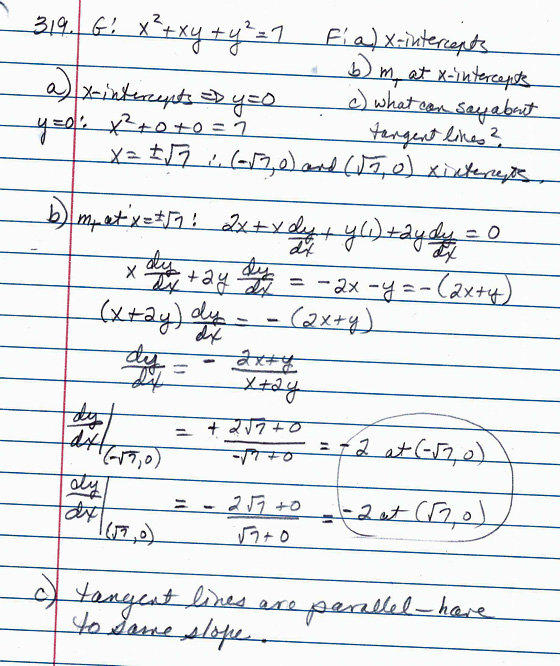 319. G: x²+xy+y²=7
F: a) x-intercepts
b) m_T at x-intercepts
c) what can say about
tangent lines?
a) x-intercepts ⇒ y=0
y=0: x²+0+0=7
x=±√7 ∴ (-√7,0) and (√7,0) x intercepts.
b) m_T at x=±√7: 2x+x dy/dx + y(1)+2y dy/dx = 0
x dy/dx + 2y dy/dx = -2x-y = -(2x+y)
(x+2y) dy/dx = -(2x+y)
dy/dx = - (2x+y)/(x+2y)
dy/dx |(-√7,0) = + (2√7+0)/(-√7+0) = -2 at (-√7,0)
dy/dx |(√7,0) = - (2√7+0)/(√7+0) = -2 at (√7,0)
c) tangent lines are parallel – have
to same slope.